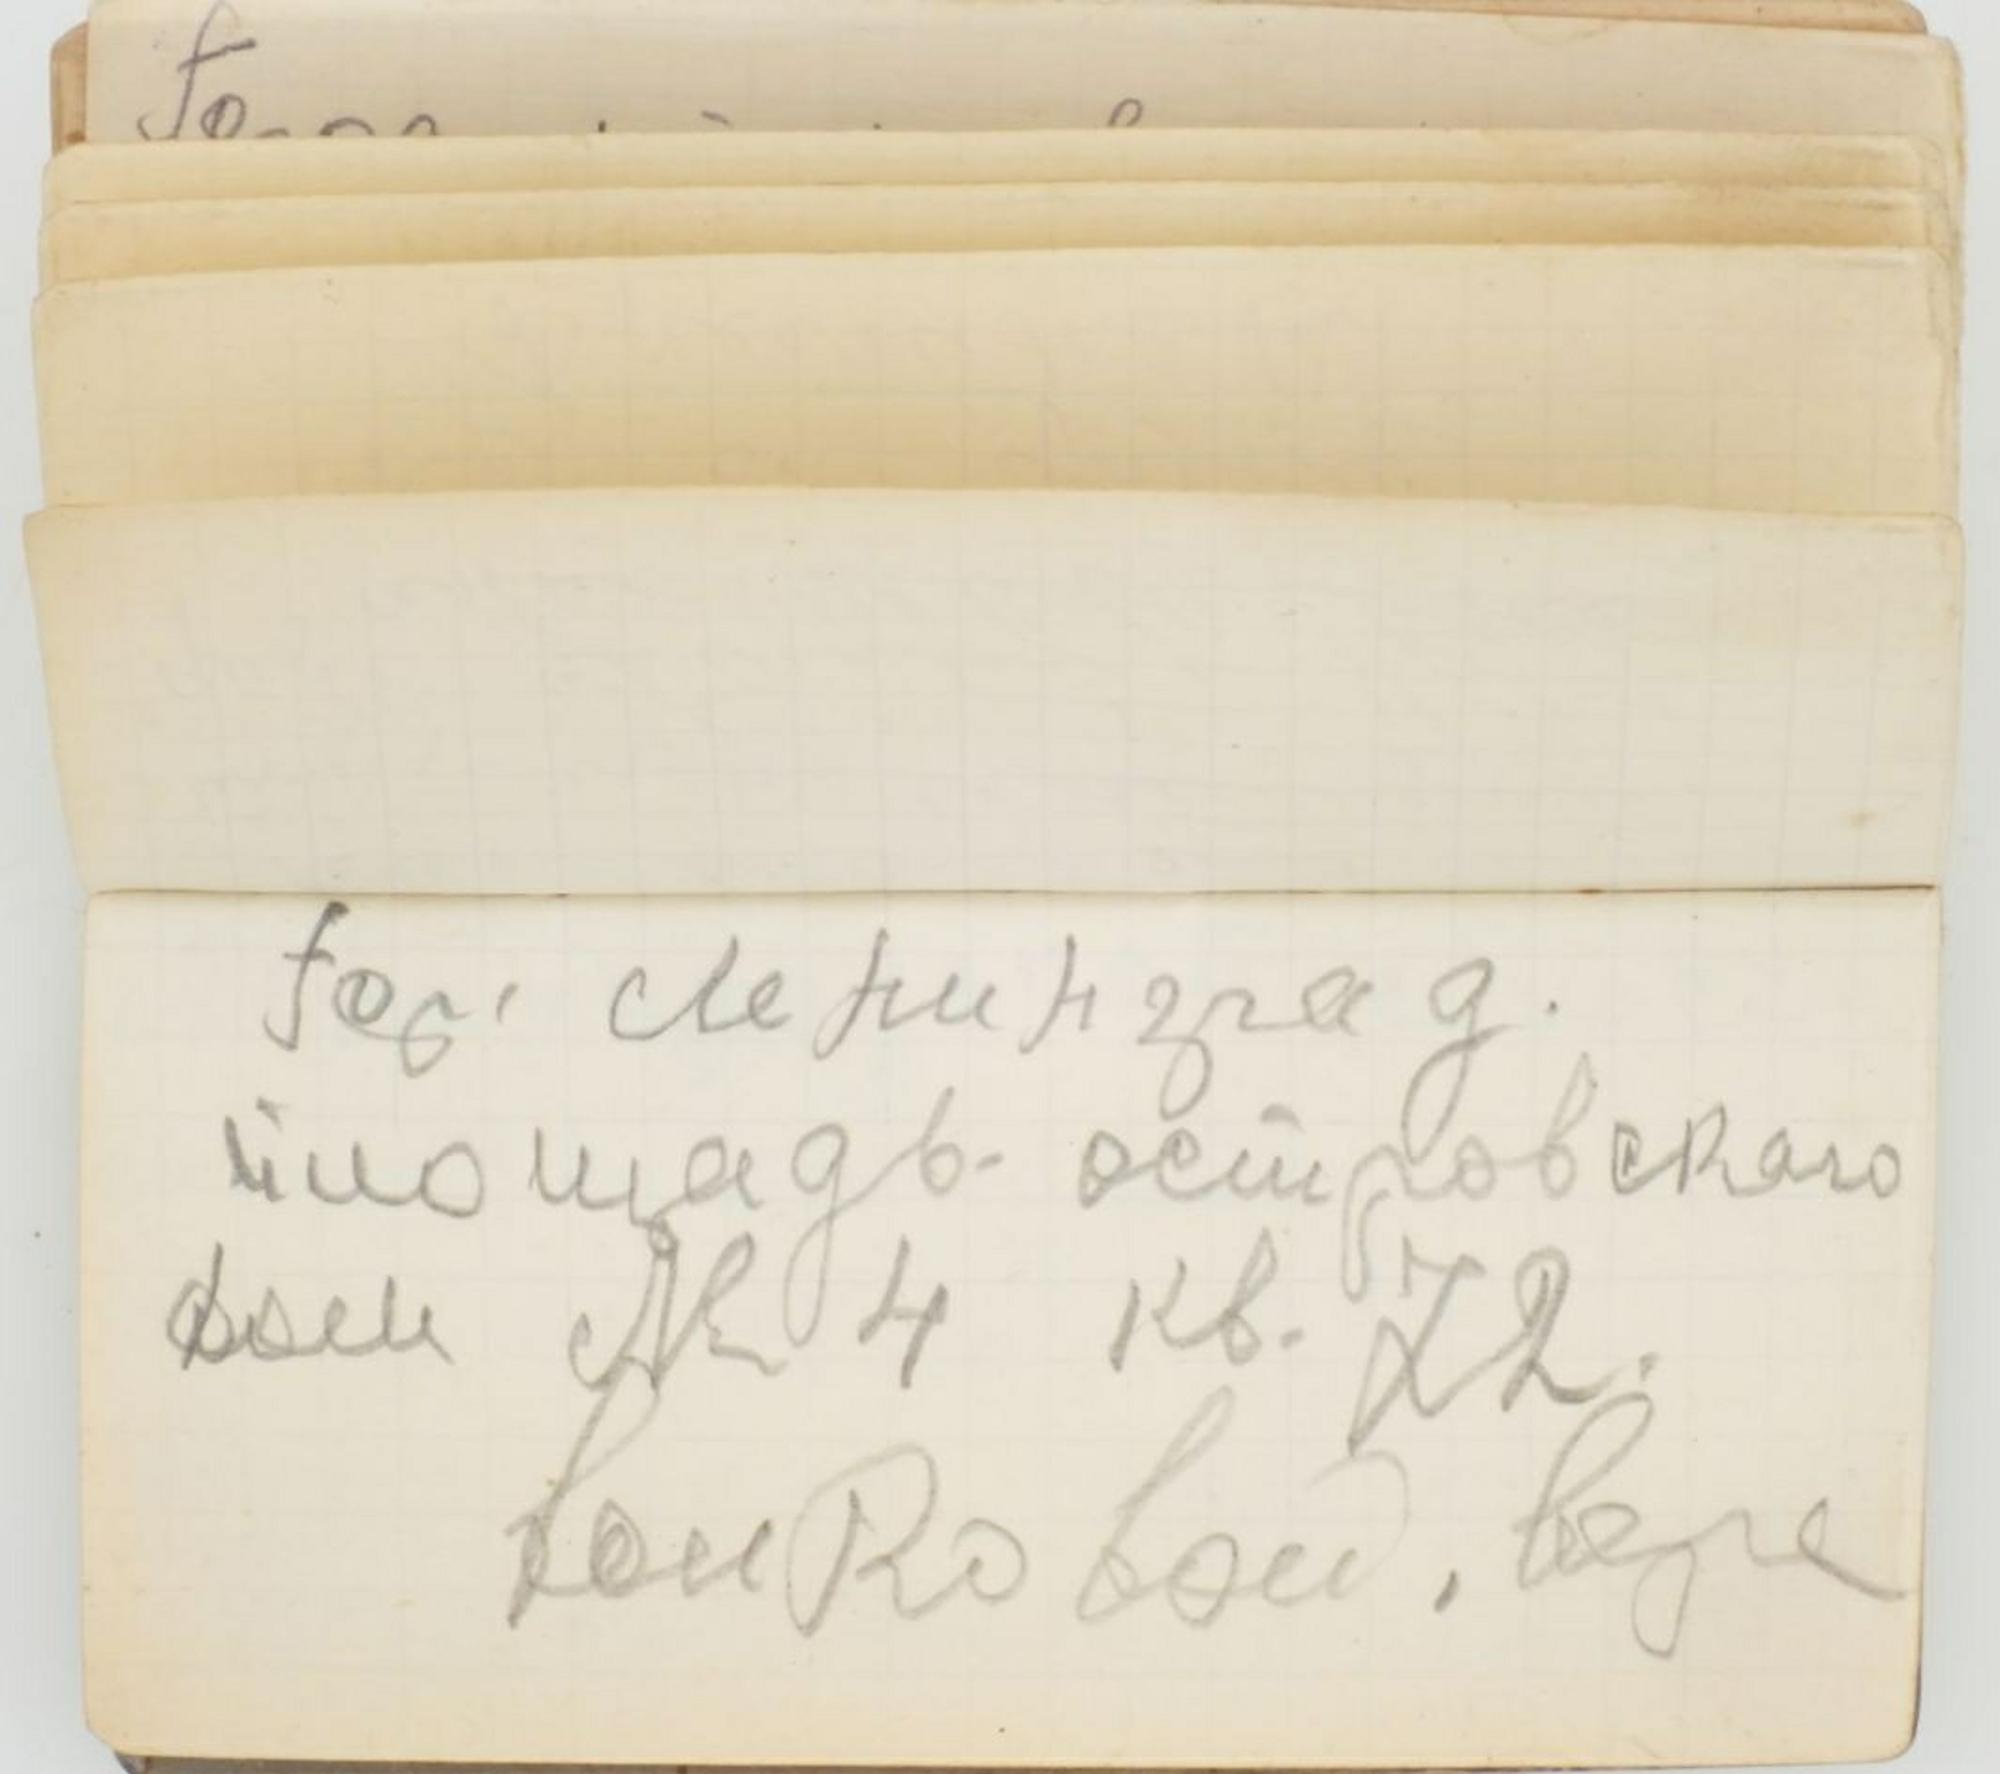 Гор. Ленинград.
площадь. островского
дом № 4 кв. 72.
Войковой, Вере